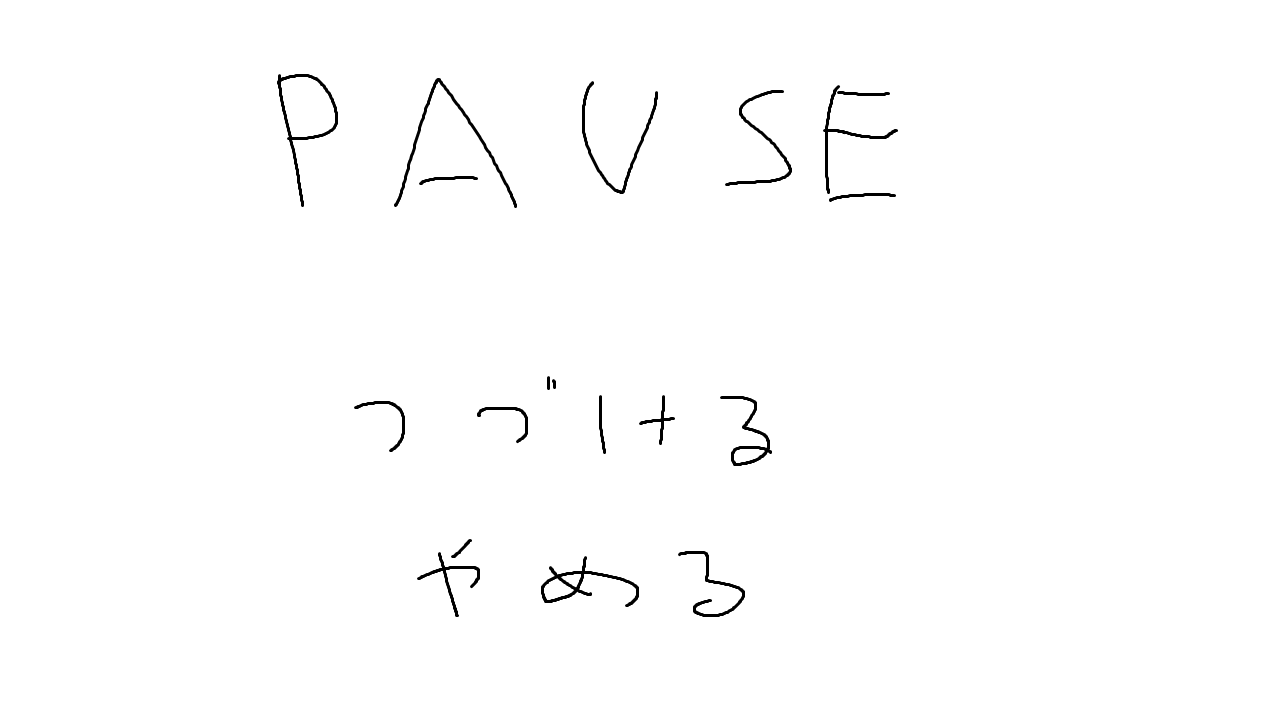 PAUSE
つづける
やめる